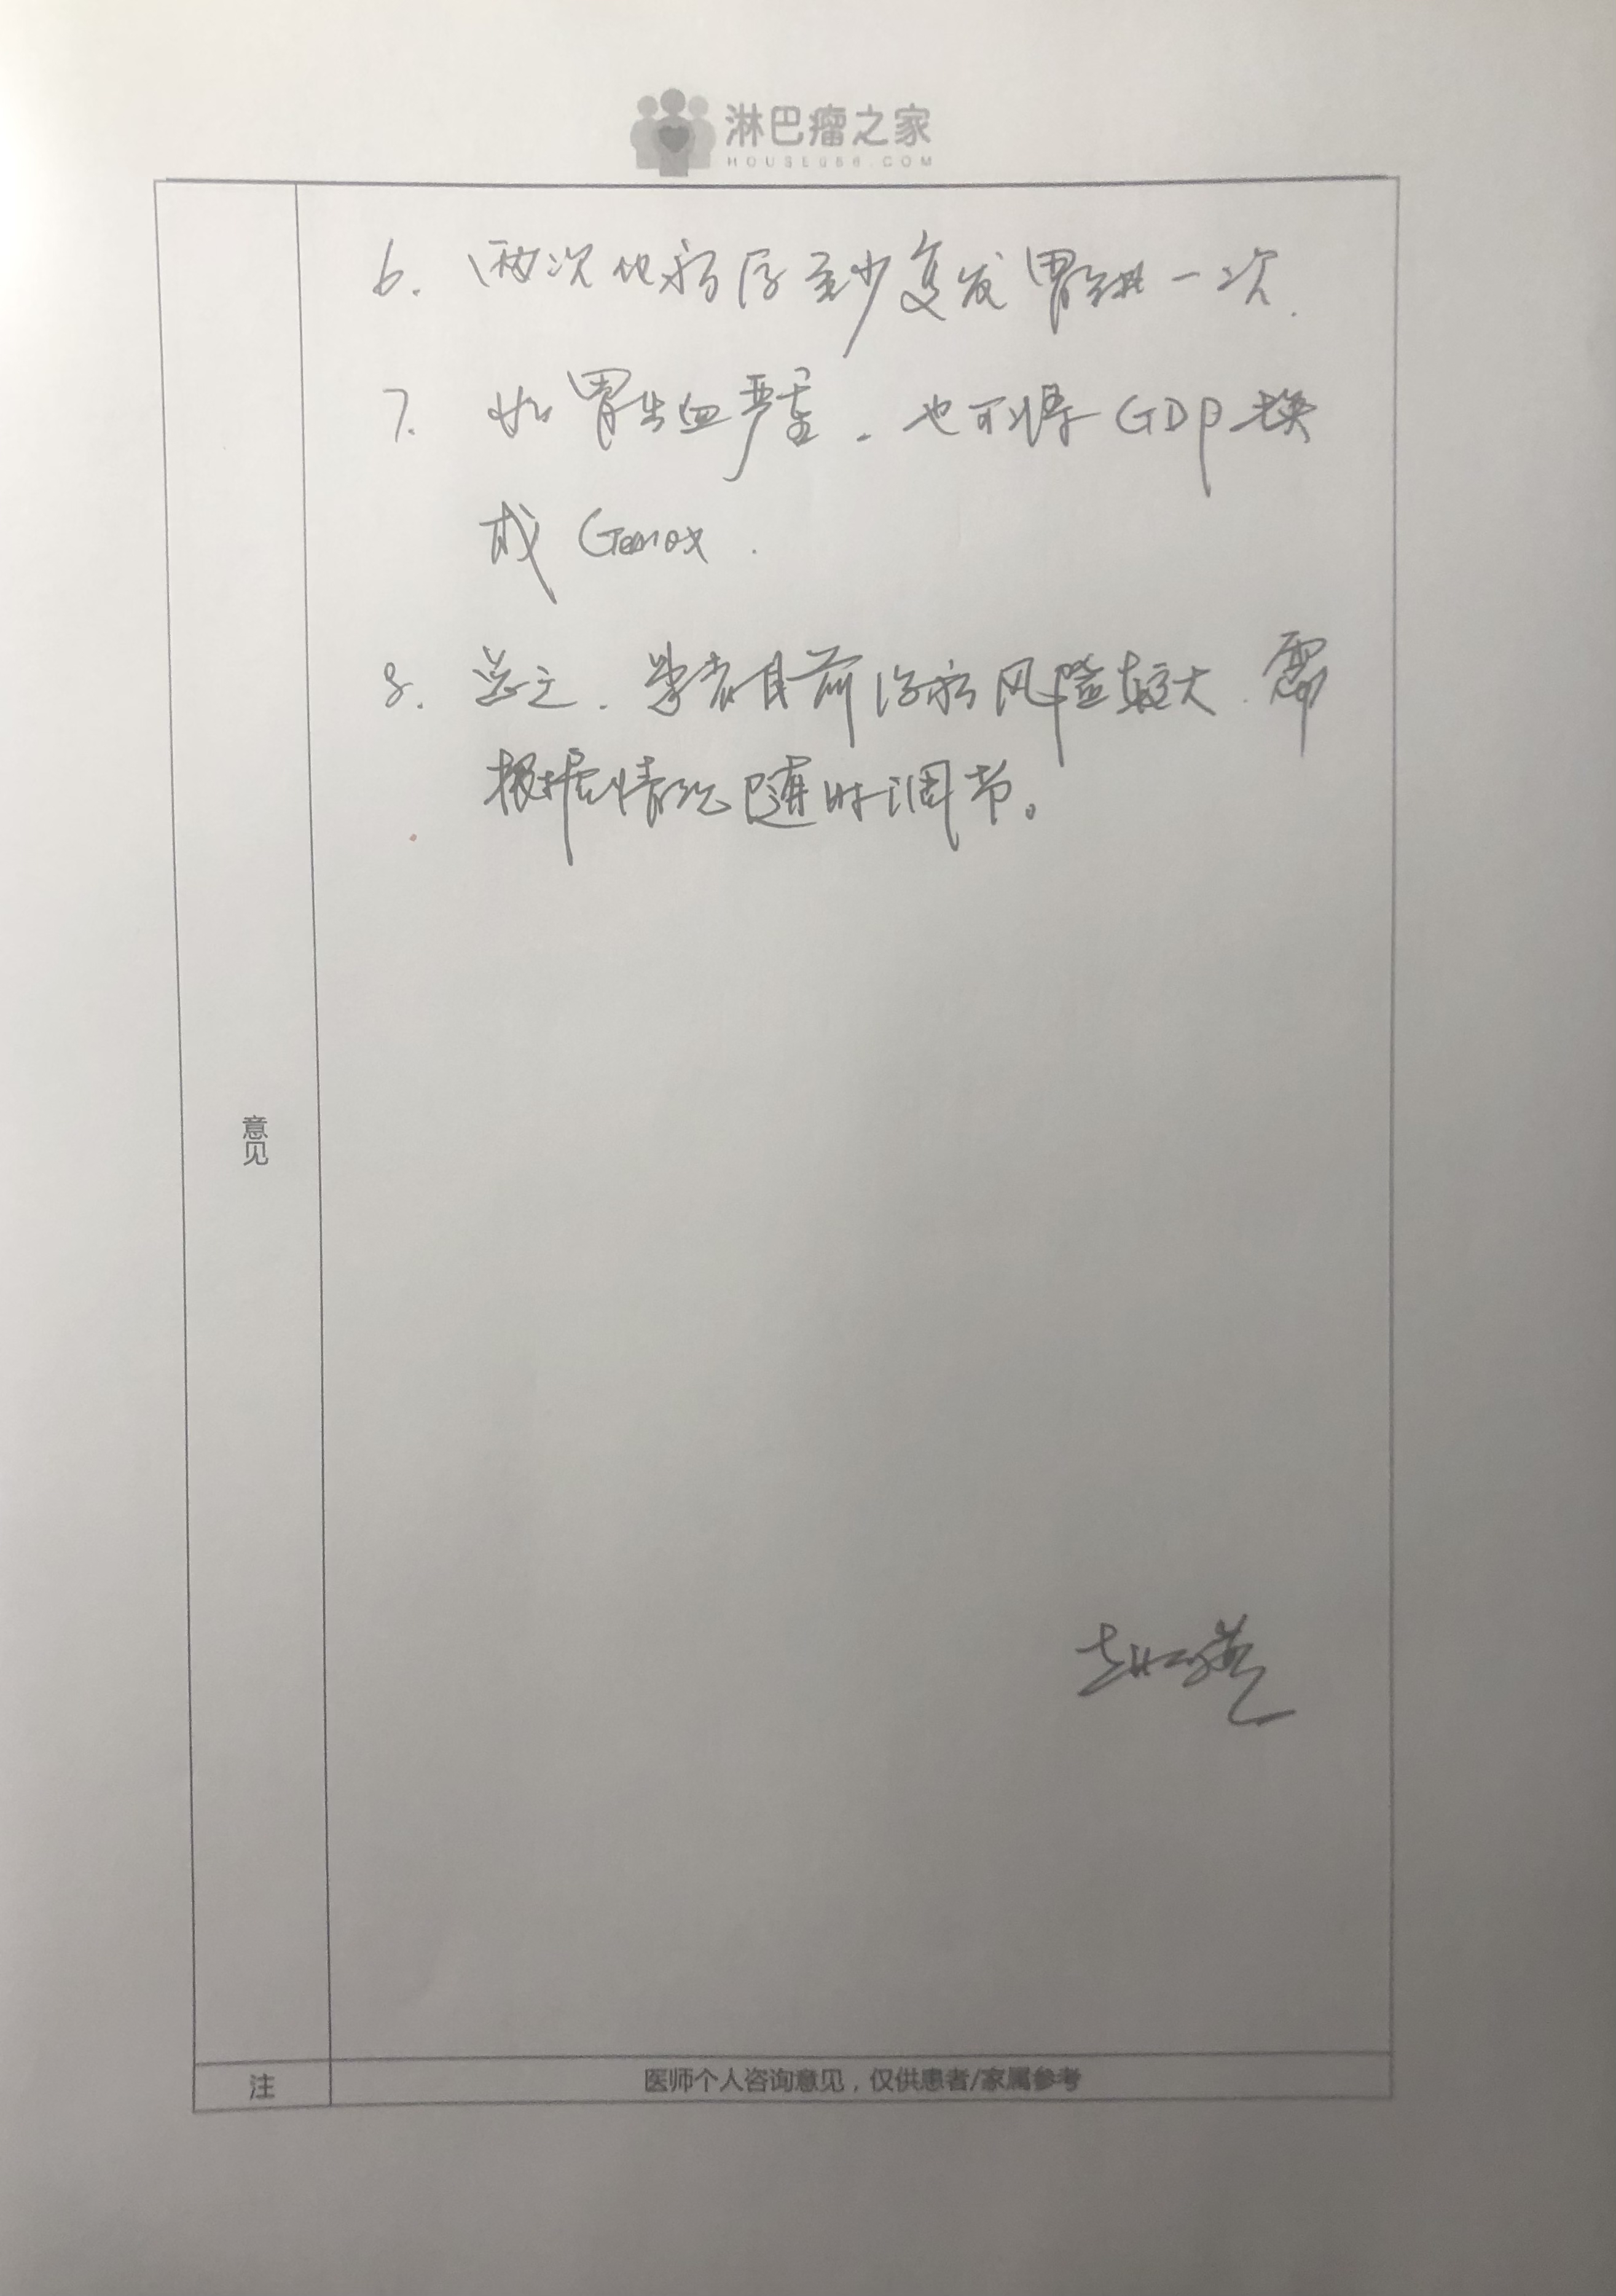 淋巴瘤之家
HOUSE086.COM
6. 两次化疗后至少复发胃镜一次.
7. 如胃出血严重.也可将GDP换
成Gemox.
8. 总之.患者目前治疗风险较大.需
根据情况随时调节。
意见
注
医师个人咨询意见，仅供患者/家属参考